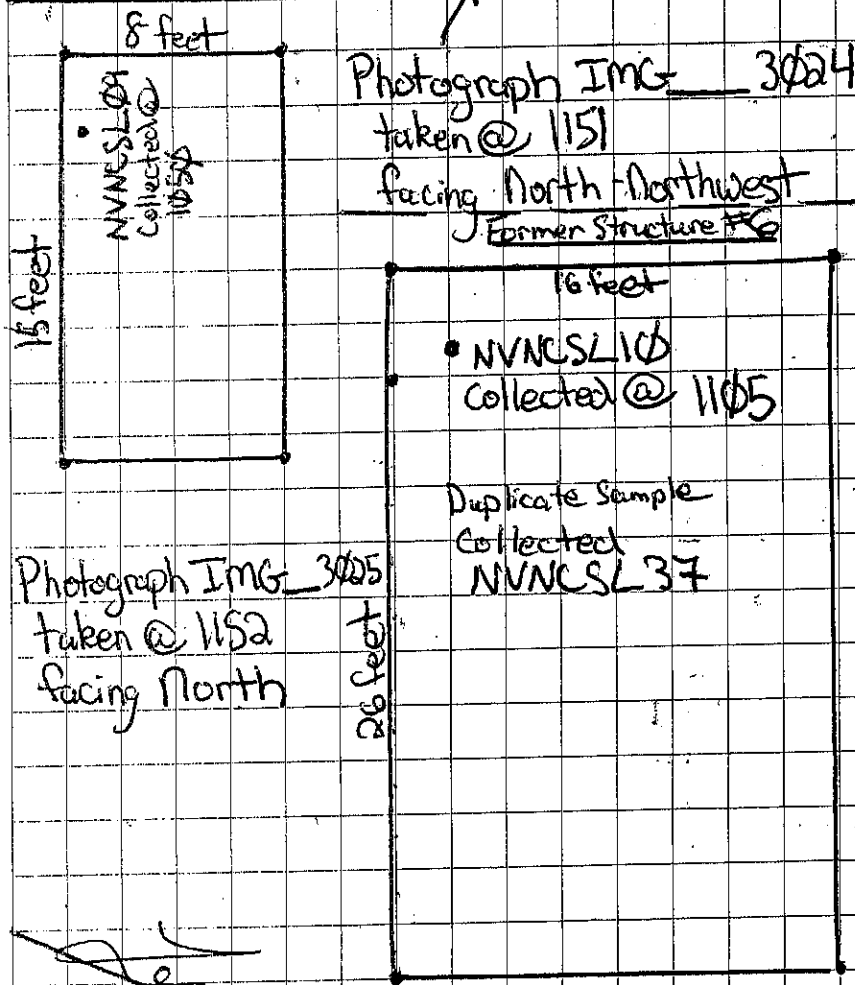 8 feet
NVNCSLØ9
Collected @
1Ø5Ø
15 feet
Photograph IMG___3Ø24
taken @ 1151
facing North-Northwest
Former Structure #6
16 feet
NVNCSL1Ø
Collected @ 11Ø5
Duplicate Sample
Collected
NVNCSL37
26 feet
Photograph IMG_3Ø25
taken @ 1152
facing North